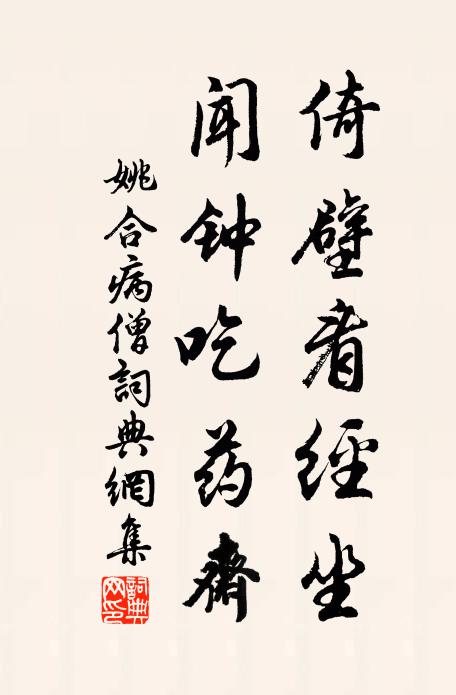 倚壁看經坐
闻钟吃药齋
姚合病僧詞典網集
詞典網印